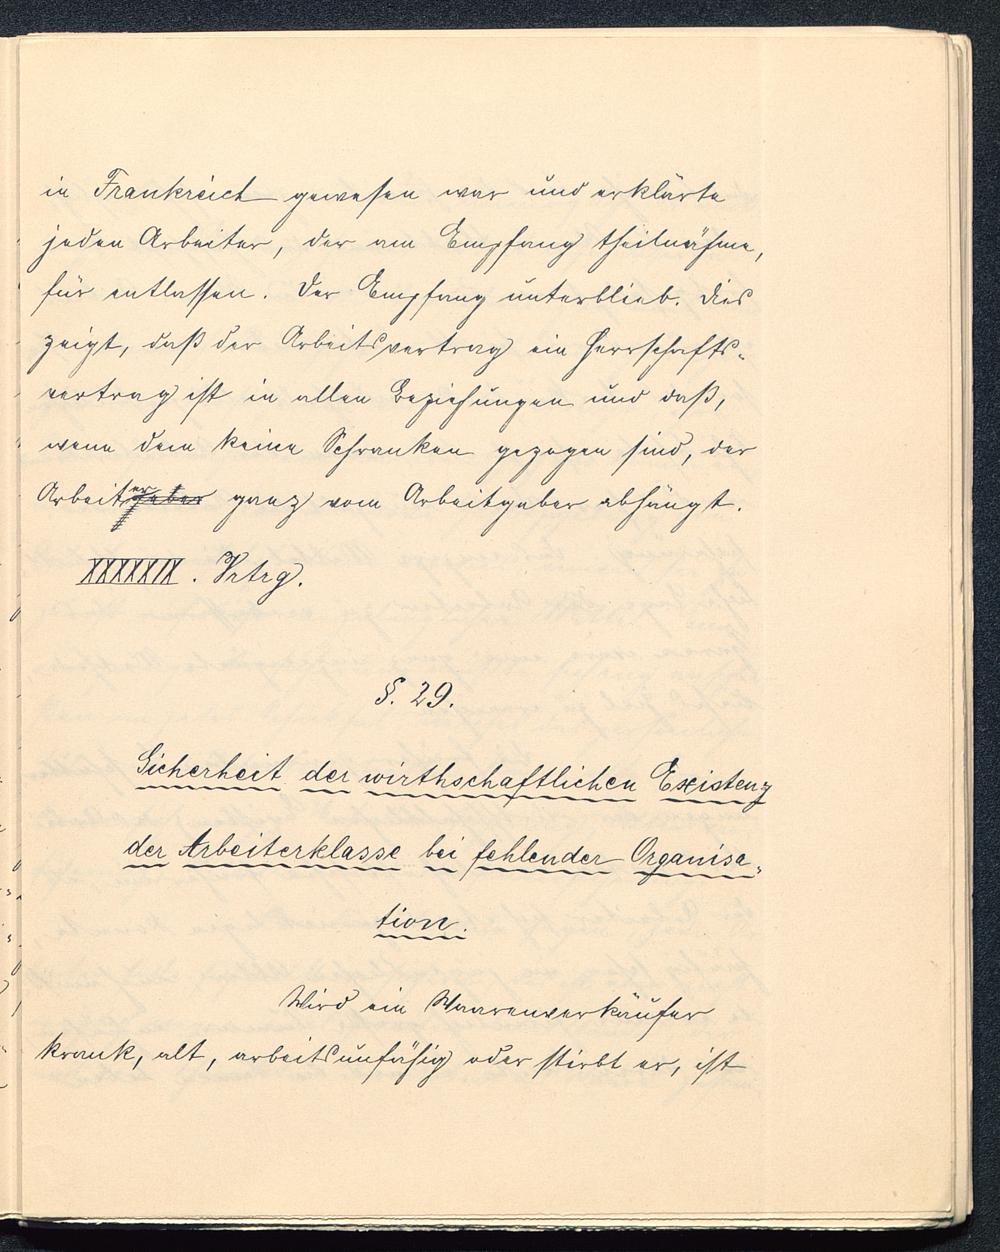 in Frankreich gewesen war und erklärte
jeden Arbeiter, der am Empfang theilnähme,
für entlassen. Der Empfang unterblieb. Dies
zeigt, daß der Arbeitsvertrag ein Herrschafts-
vertrag ist in allen Beziehungen und daß,
wenn dem keine Schranken gezogen sind, der
Arbeiter ganz vom Arbeitgeber abhängt.
XXXXXIX. Vrtrg.
§. 29.
Sicherheit der wirthschaftlichen Existenz
der Arbeiterklasse bei fehlender Organisa-
tion.
Wird ein Waarenverkäufer
krank, alt, arbeitsunfähig oder stirbt er, ist